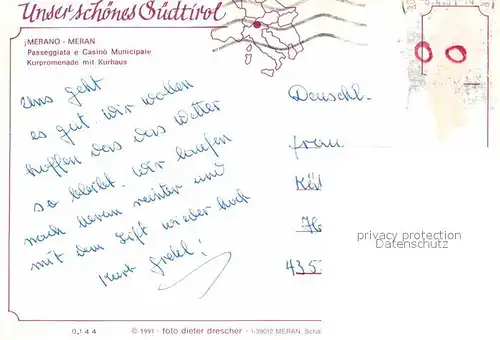 Unser schönes Südtirol
¡MERANO - MERAN
Passeggiata e Casinò Municipale
Kurpromenade mit Kurhaus
Uns geht
es gut. Wir wollen
hoffen das das Wetter
so bleibt. Wir laufen
nach Meran runter und
mit dem Lift wieder hoch
Kurt Gretel!
Deuschl.
Frau
435
privacy protection
Datenschutz
0,144 © 1991 - foto dieter drescher - I-39012 MERAN, Scha